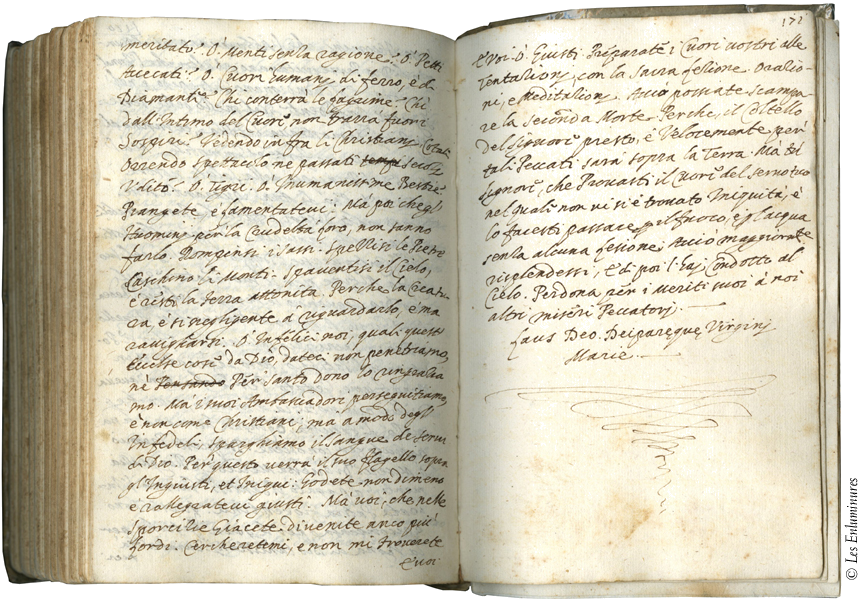 meritato? Ò Menti senza ragione? Ò Petti
Accecati? Ò Cuori humani di ferro, è di
Diamanti? Chi conterrà le lagrime? Chi
dall'Intimo del Cuore non trarrà fuori
Sospiri? Vedendo infra li Christiani
Orrendo spetacolo ne passati secoli
Udito? Ò Tigri. Ò Inumanissime Bestie
Piangete è lamentatevi: Ma poi che gl'
Huomini per la crudeltà loro, non sanno
farlo. Rompinsi i sassi. Spezzisi le Pietre
Caschino li Monti. Spaventisi il Cielo,
è resti la Terra attonita. Perche la Creatu
ra, è sì negligente à riguardarlo, è ma
ravigliarsi. Ò Infelici noi, quali questi
così da Dio dateci non penetriamo,
nè Pensando Per santo dono lo
mo. Mà i suoi Ambasciadori perseguitiamo,
è non come Christiani, ma a modo degl'
Infedeli, sparghiamo il sangue de servi
di Dio. Per questo verrà il suo flagello sopra
gl'Ingiusti, et Iniqui. Godete non dimeno
è rallegratevi giusti. Mà voi, che nelle
Sporcitie Giacete. divenite anco più
lordi. Cercheretemi, e non mi troverete
è voi
172
è Voi. Ò. Giusti. Preparate i Cuori vostri alle
Tentationi, con la Sacra Letione. Oratio-
ne, e Meditationi. Acciò possiate scampa
re la seconda Morte. Perche, il Coltello
del Signore presto, è Velocemente per
tali Peccati sarà sopra la Terra. Mà
Signore, che Provasti il Cuore del servo tuo
nel quale non vi si è trovato Iniquità, è
lo facesti passare p il fuoco, è p l'acqua
senza alcuna lesione. Acciò maggiormte
risplendessi, è di poi l'hai Condotto al
Cielo. Perdona per i Meriti suoi à noi
altri miseri Peccatori.
Laus Deo. Deiparaeque Virgini
Marie.
© Les Enluminures